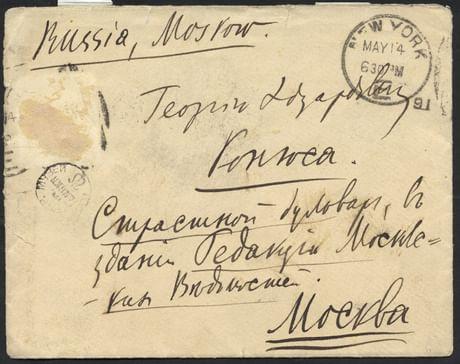 Russia, Moskow.
NEW YORK
MAY 14
630PM
91
Георгію Эдуардовичу
Конюса.
Страстной бульвар, въ
зданіи Редакціи Москов-
скихъ Вѣдомостей.
Москва